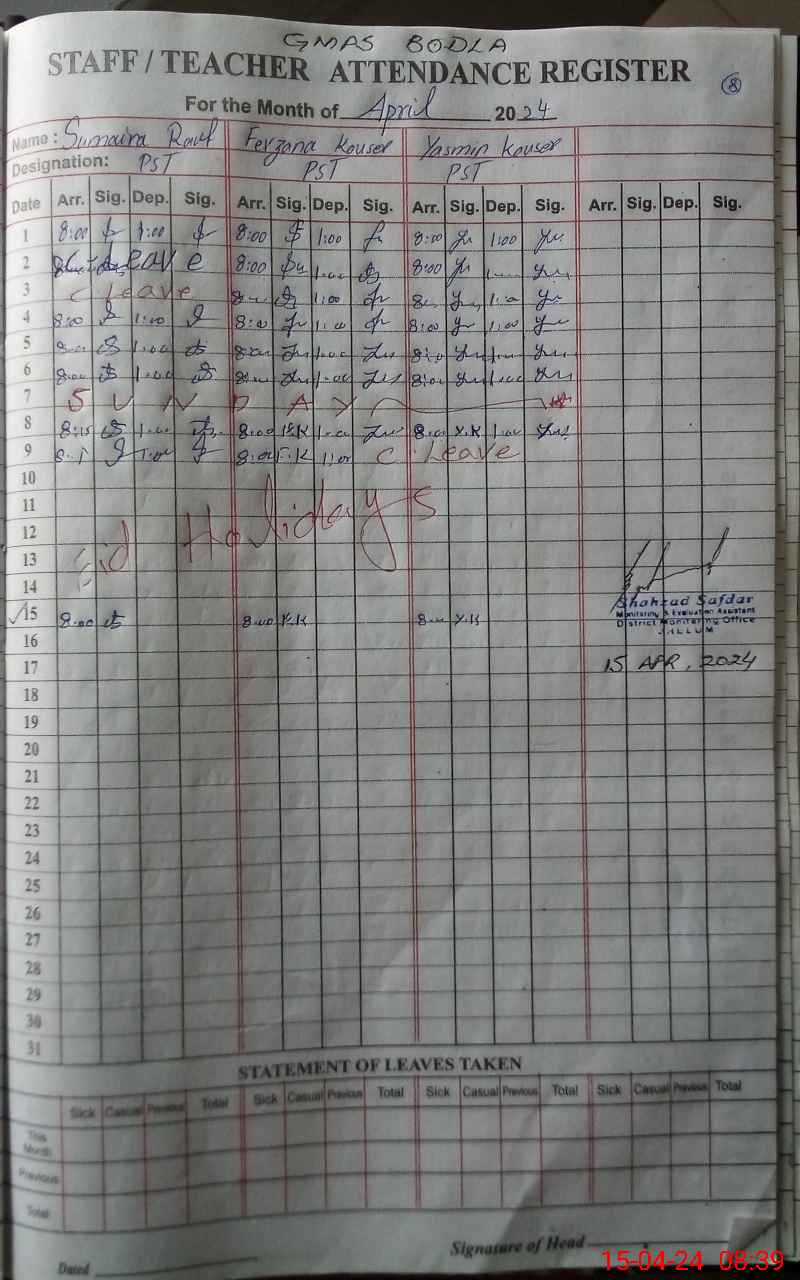 GMAS BODLA
STAFF / TEACHER ATTENDANCE REGISTER
8
For the Month of April 2024
Name: Sumaira Rauf Ferzana Kouser Yasmin Kouser
Designation: PST PST PST
Date Arr. Sig. Dep. Sig. Arr. Sig. Dep. Sig. Arr. Sig. Dep. Sig. Arr. Sig. Dep. Sig.
1 8:00 1:00 8:00 1:00 8:00 1:00
2 Leave 8:00 1:00 8:00
3 C Leave 8:00 1:00 8:00 1:00
4 8:00 1:00 8:00 1:00 8:00 1:00
5 8:00 1:00 8:00 1:00 8:00 1:00
6 8:00 1:00 8:00 1:00 8:00 1:00
7 S U N D A Y
8 8:15 1:00 8:00 1:00 8:00 Y.K 1:00
9 1:00 8:00 F.K 1:00 C. Leave
10
11
12
Eid Holidays
13
14
15 8:00 8:00 Y.K 8:00 Y.K
Shahzad Safdar
Monitoring & Evaluation Assistant
District Monitoring Office
16
17 15 APR, 2024
18
19
20
21
22
23
24
25
26
27
28
29
30
31
STATEMENT OF LEAVES TAKEN
Sick Casual Previous Total Sick Casual Previous Total Sick Casual Previous Total Sick Casual Previous Total
This Month
Previous
Total
Signature of Head
Dated
15-04-24 08:39